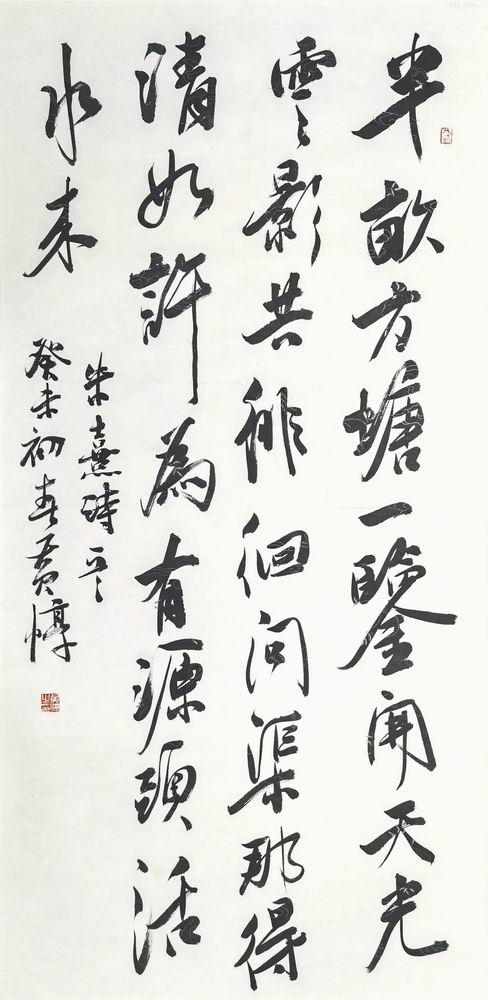 半畝方塘一鑒開天光
雲影共徘徊問渠那得
清如許為有源頭活
水来
朱熹詩一首
癸未初春黃惇